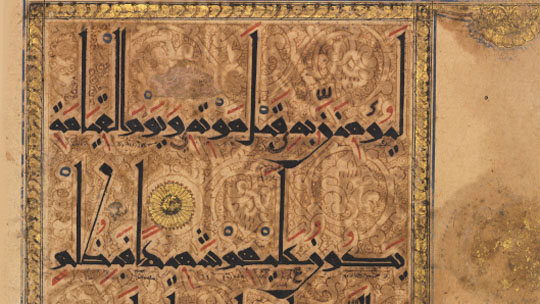 ليؤمنن به قبل موته ويوم القيامة
يكون عليهم شهيدا فبظلم